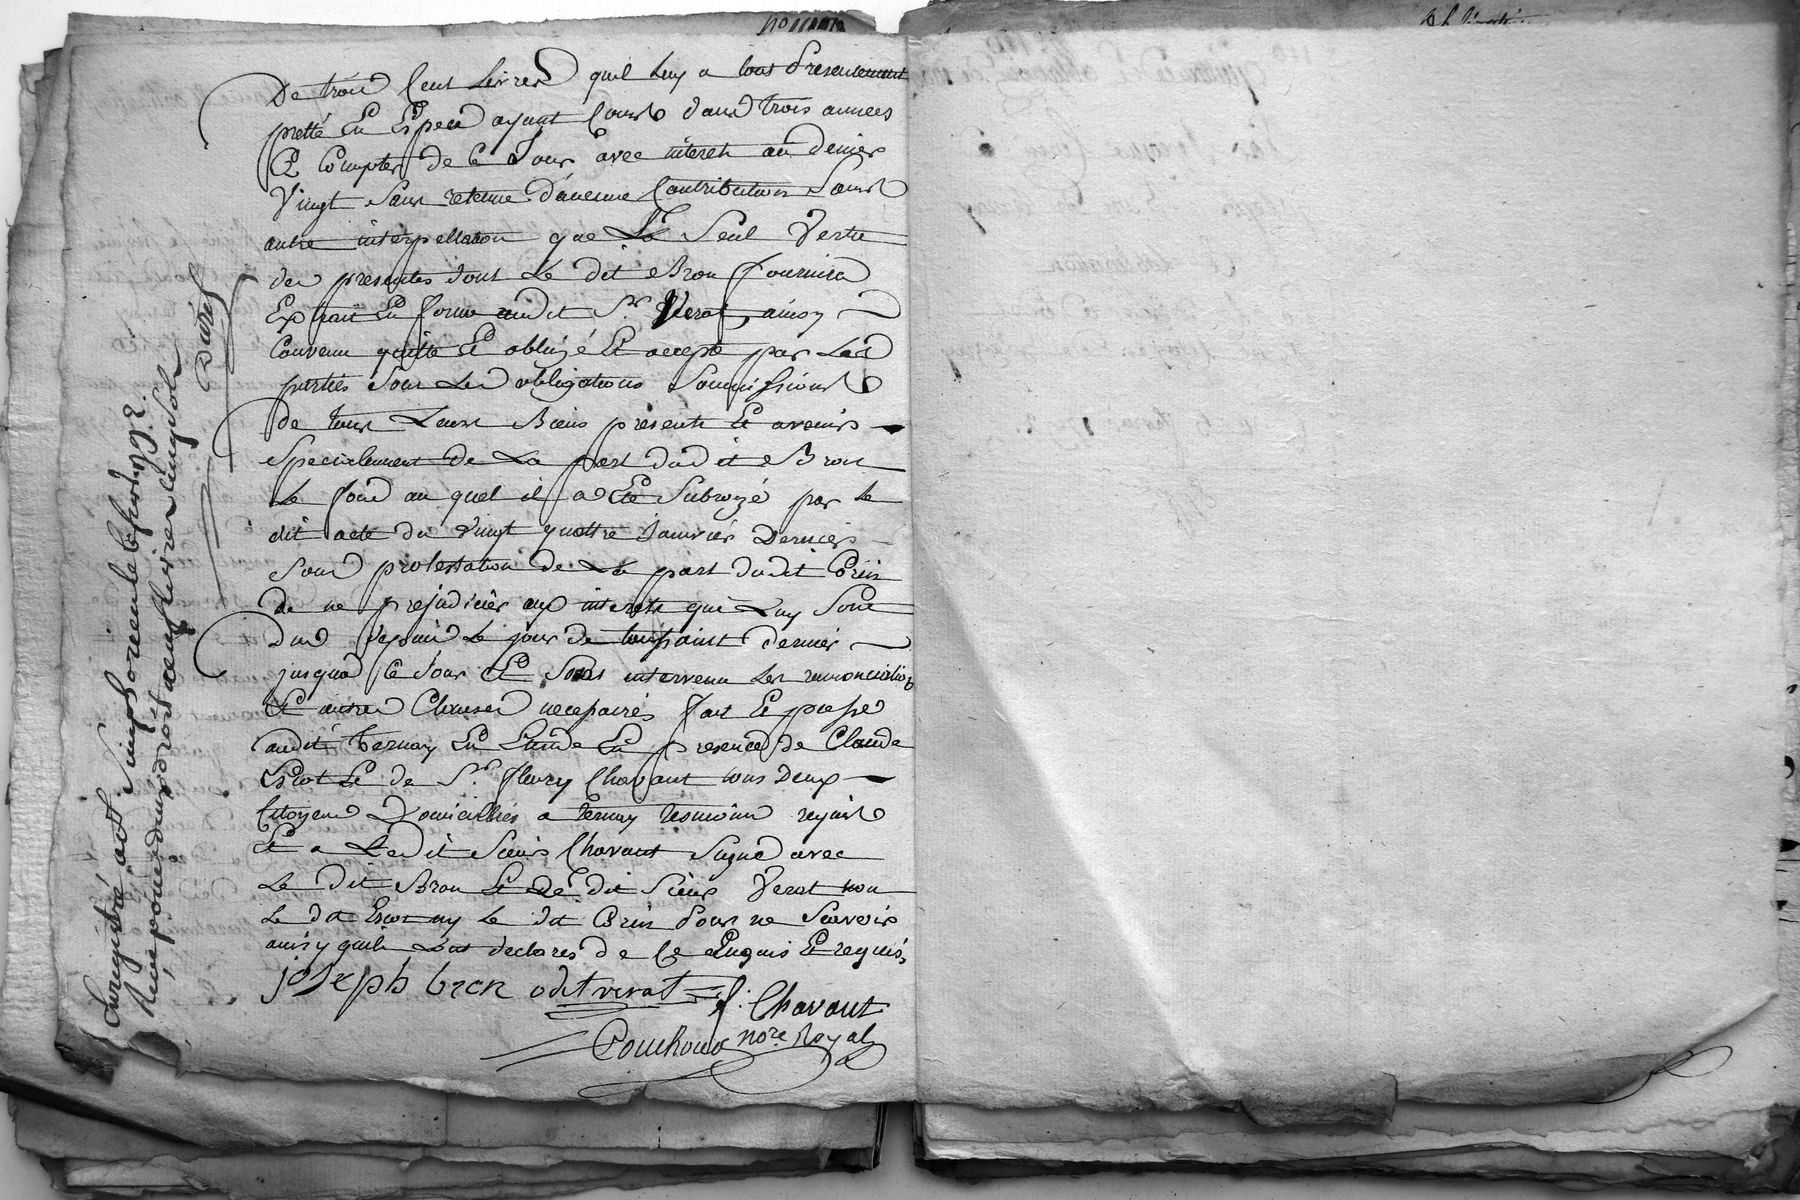 De trois Cent Livres quil luy a tout presentement
pretté En Espece ayant Cours dans trois annees
A Compter de Ce Jour avec interets au denier
Vingt Sans retenue d'aucune Contribution Sans
autre interpellation que La Seul Vertu
des presentes dont Le dit Bron fournira
Extrait En forme audit Sr. Verat, ainsy
Convenu quitté Et obligé Et accepté par Les
parties Sous Les obligations Soumissions
de tous Leurs Biens presents Et avenirs
Specialement de La part dudit Bron
Le fond au quel il a Eté Subrogé par le
dit acte du Vingt quattre Janvier Dernier
Sous protestation de La part dudit
de ne prejudicier aux interets qui Luy Sont
Dus depuis Le jour de toussaint dernier
jusqua Ce Jour Et Sous intervenu Les renonciations
Et autres Clauses necessaires fait Et passé
audit ternay En Etude En presence de Claude
Escot Et de Sr. fleury Chavant tous Deux
Citoyens Domiciliés a ternay temoins requis
Et a Ledit Sieur Chavant Signé avec
Le Dit Bron Et Le dit Sieur Verat non
Le dit Escot ny Le dit pour ne Scavoir
ainsy quils ont declarés de Ce Enquis Et requis,
joseph bron odit verat f. Chavant
Pouchoud nore Royal
Enregistré a St Simphorien le 6 1792.
Reçu pour du droit